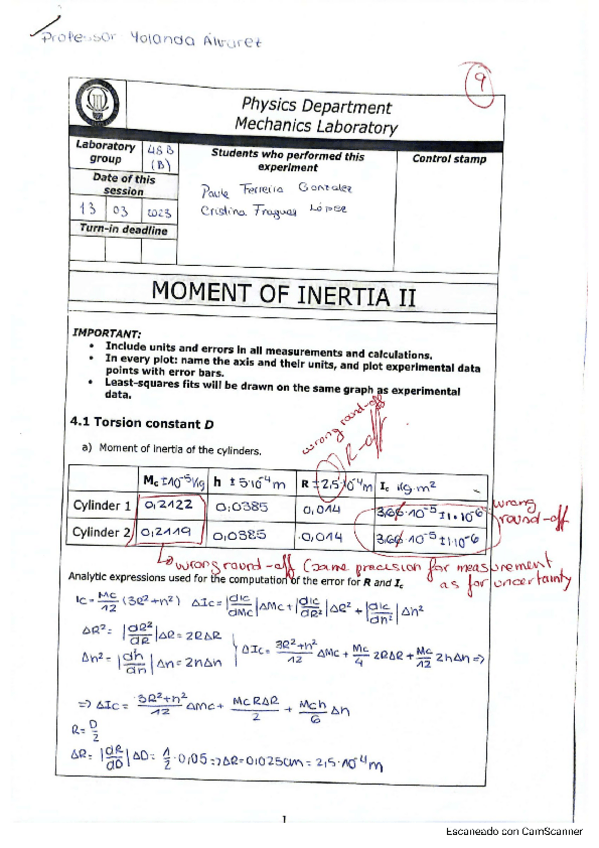 Professor Yolanda Álvarez
9
Physics Department
Mechanics Laboratory
Laboratory group
48B (B)
Students who performed this experiment
Control stamp
Date of this session
13 03 2023
Turn-in deadline
Paula Ferreira González
Cristina Fraguas López
MOMENT OF INERTIA II
IMPORTANT:
• Include units and errors in all measurements and calculations.
• In every plot: name the axis and their units, and plot experimental data
points with error bars.
• Least-squares fits will be drawn on the same graph as experimental
data.
wrong round-off
R-off
4.1 Torsion constant D
a) Moment of inertia of the cylinders.
Mc ±10⁻⁵ kg h ± 5·10⁻⁴ m R ± 2,5·10⁻⁴ m Ic kg m²
Cylinder 1 0,2122 0,0385 0,014 3,66·10⁻⁵ ± 1·10⁻⁶
Cylinder 2 0,2119 0,0385 0,014 3,66·10⁻⁵ ± 1·10⁻⁶
wrong round-off
wrong round-off (same precision for measurement
as for uncertainty
Analytic expressions used for the computation of the error for R and Ic
Ic = Mc/12 (3R²+h²) ΔIc = |dIc/dMc| ΔMc + |dIc/dR²| ΔR² + |dIc/dh²| Δh²
ΔR² = |dR²/dR| ΔR = 2RΔR
Δh² = |dh/dh| Δh = 2hΔh
ΔIc = 3R²+h²/12 ΔMc + Mc/4 2RΔR + Mc/12 2hΔh ⇒
⇒ ΔIc = 3R²+h²/12 ΔMc + McRΔR/2 + Mch/6 Δh
R = D/2
ΔR = |dR/dD| ΔD = 1/2 · 0,05 ⇒ ΔR = 0,025cm = 2,5·10⁻⁴ m
1
Escaneado con CamScanner